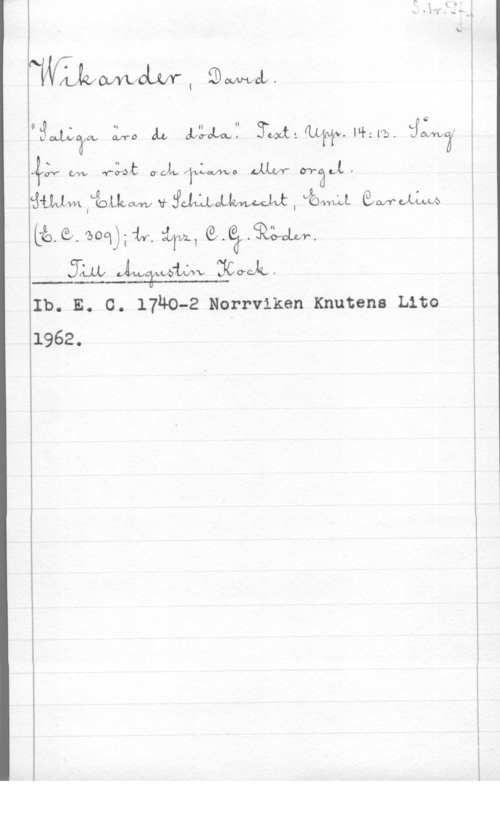 S.tr.Pf.
Wikander, David.
"Saliga äro de döda." Text: Upp. 14:13. Sång
för en röst och piano eller orgel.
Sthlm, Elkan & Schildknecht, Emil Carelius
(E. C. 309); tr. Lpz, C. G. Röder.
Till Augustin Kock.
Ib. E. C. 1740-2 Norrviken Knutens Lito
1962.